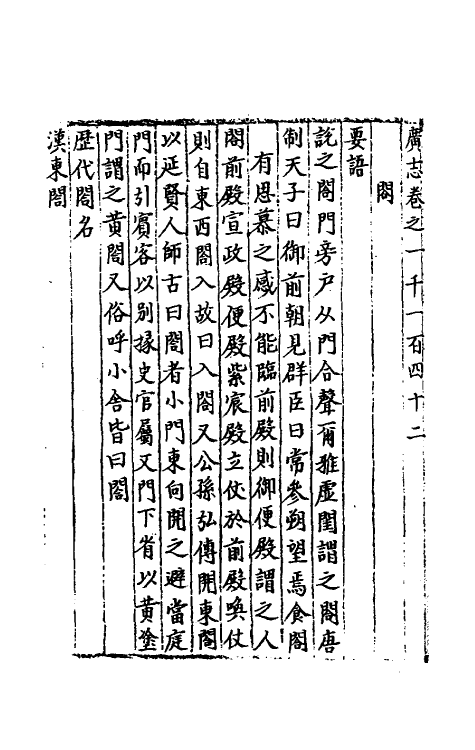 廣志卷之一千一百四十二
閤
要語
說之閤門旁戶从門合聲爾雅虛閨謂之閤唐
制天子日御前朝見群臣曰常參朔望焉食閤
有思慕之感不能臨前殿則御便殿謂之人
閤前殿宣政殿便殿紫宸殿立仗於前殿喚仗
則自東西閤入故曰入閤又公孫弘傳開東閤
以延賢人師古曰閤者小門東向開之避當庭
門而引賓客以別掾史官屬又門下省以黃塗
門謂之黃閤又俗呼小舍皆曰閤
歷代閤名
漢東閤